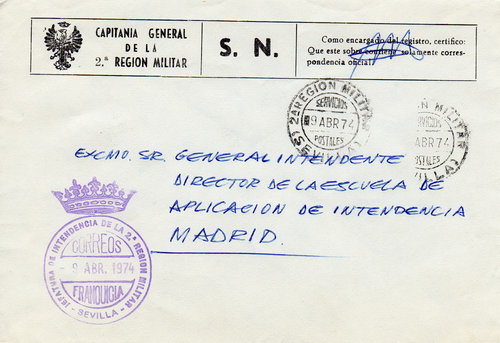 CAPITANIA GENERAL
DE LA
2.ª REGION MILITAR
S. N.
Como encargado del registro, certifico:
Que este sobre contiene solamente corres-
pondencia oficial.
2ª REGION MILITAR
SERVICIOS
9 ABR 74
POSTALES
(SEVILLA)
REGION MILITAR
SERVICIOS
ABR 74
POSTALES
VILLA)
EXCMO. SR. GENERAL INTENDENTE
DIRECTOR DE LA ESCUELA DE
APLICACION DE INTENDENCIA
MADRID.
JEFATURA DE INTENDENCIA DE LA 2ª REGION MILITAR
CORREOS
- 9 ABR. 1974
FRANQUICIA
- SEVILLA -